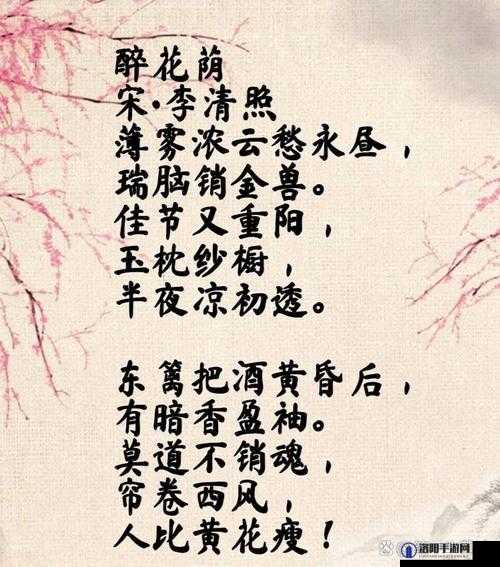 醉花荫
宋·李清照
薄雾浓云愁永昼，
瑞脑销金兽。
佳节又重阳，
玉枕纱橱，
半夜凉初透。
东篱把酒黄昏后，
有暗香盈袖。
莫道不销魂，
帘卷西风，
人比黄花瘦！
洛阳手游网